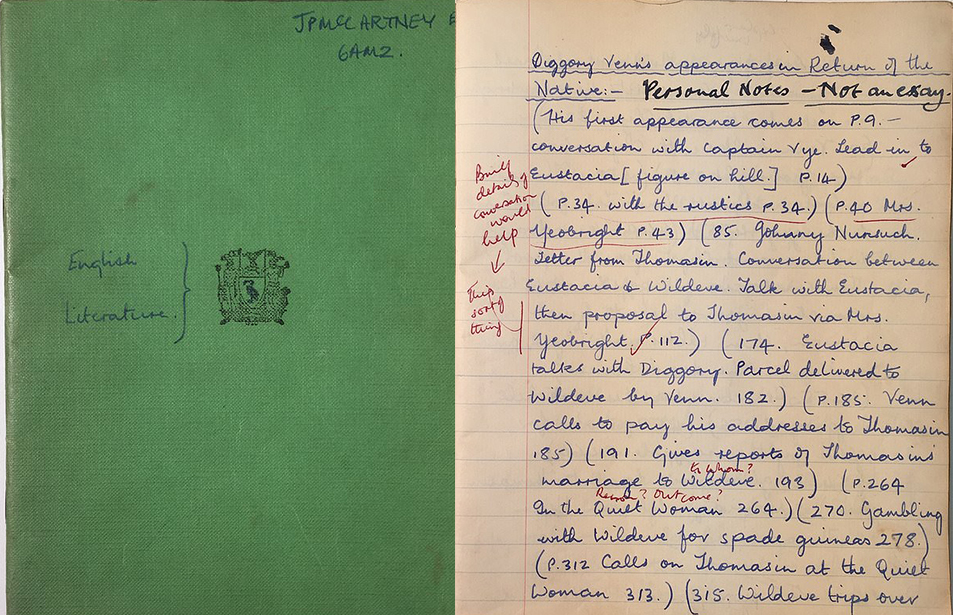 JPMCCARTNEY
6AM2.
English
Literature.
Diggory Venn's appearances in Return of the
Native:- Personal Notes - Not an essay.
(His first appearance comes on P.9. -
conversation with Captain Vye. Lead in to
Eustacia [figure on hill.] P.14)
(P.34. with the rustics P.34.) (P.40 Mrs.
Yeobright P.43) (85. Johnny Nunsuch.
Letter from Thomasin. Conversation between
Eustacia & Wildeve. Talk with Eustacia,
then proposal to Thomasin via Mrs.
Yeobright. P.112.) (174. Eustacia
talks with Diggory. Parcel delivered to
Wildeve by Venn. 182.) (P.185. Venn
calls to pay his addresses to Thomasin
185) (191. Gives reports of Thomasins'
to whom?
marriage to Wildeve. 193) (P.264
Reason? Outcome?
In the Quiet Woman 264.) (270. Gambling
with Wildeve for spade guineas 278.)
(P.312 Calls on Thomasin at the Quiet
Woman 313.) (315. Wildeve trips over
Brief
details of
conversation
would
help
This
sort of
thing